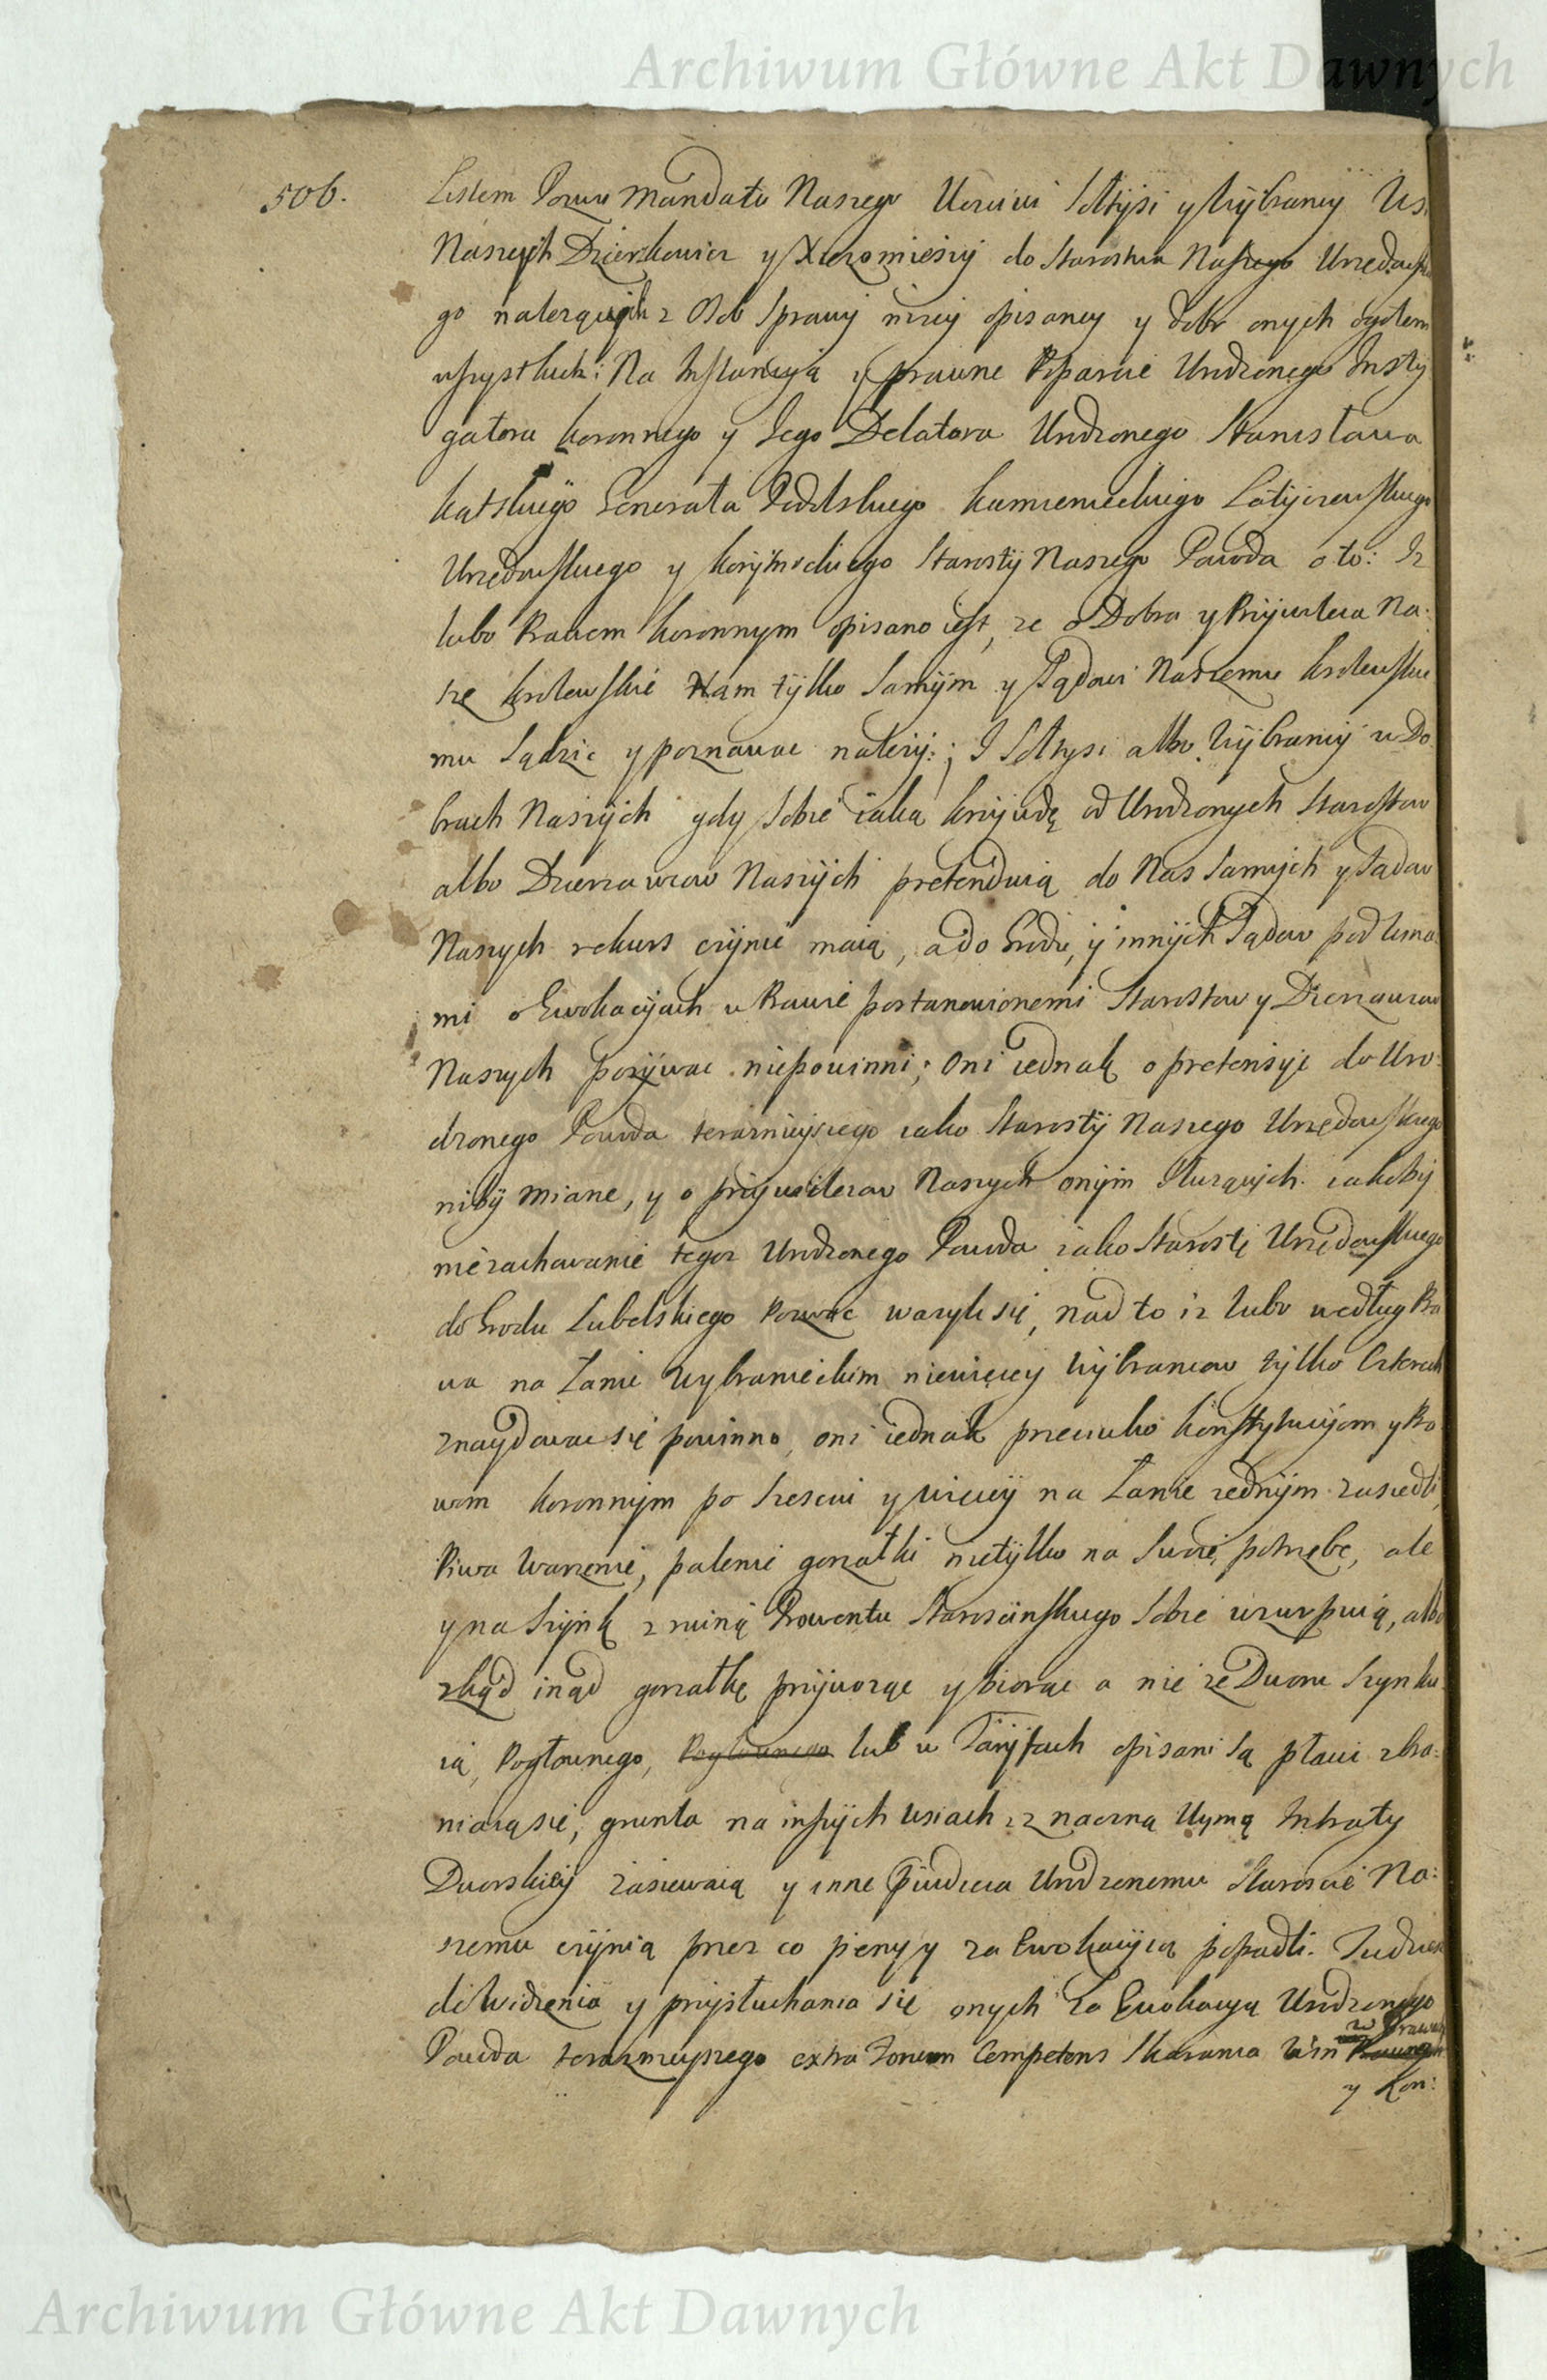 Archiwum Główne Akt Dawnych
506.
Listem Pozwu Mandatu Naszego Uczciwi Sołtysi y Wybrancy Wsi
Naszych Dzierzkowice y Xiezomiesz do Starostwa Naszego Urzędowskie
go nalezących z Osob Sprawy nizey opisaney y dobr onych ogołem
wszystkich: Na Instancyą y prawne Poparcie Urodzonego Insty
gatora koronnego y Jego Delatora Urodzonego Stanisława
Kątskiego Generała Podolskiego Kamienieckiego Latyczewskiego
Urzędowskiego y Starosty Naszego Powoda o to: Iz
lubo Prawem koronnym opisano iest, ze o Dobra y Przywileia Na-
sze krolewskie Nam tylko Samym y Sądowi Naszemu krolewskie
mu Sądzic y poznawac nalezy:; I Sołtysi albo Wybrancy w Do
brach Naszych gdy Sobie iaką krzywdę od Urodzonych Starostow
albo Dzierzawcow Naszych pretenduią do Nas Samych y Sądow
Naszych rekurs czynic maią, a do Grodu, y innych Sądow pod
mi o Ewokacyach w Prawie postanowionemi Starostow y Dzierzawcow
Naszych pozywac niepowinni; Oni iednak o pretensye do Uro-
dzonego Powoda teraznieyszego iako Starosty Naszego Urzędowskiego
niby miane, y o przywileiow Naszych onym Sluzących iakoby
niezachowanie tegoz Urodzonego Powoda iako Starostę Urzędowskiego
do Grodu Lubelskiego Pozwac wazyli się, nad to iz lubo według Pra
wa na Łanie Wybranieckim niewięcey Wybrancow tylko Czterech
znaydowac się powinno, oni iednak przeciwko konstytucyom y Pra
wom koronnym po Szesciu y więcey na Łanie iednym zasiedli,
Piwa Warzenie, palenie gorzałki nietylko na Swoię potrzebę, ale
y na Szynk z ruiną Prowentu Starościnskiego Sobie uzurpuią, albo
zkąd inąd gorzałkę przywoząc y biorąc a nie ze Dworu Szynku-
ią, Pogłownego, Pogłownego lub w Taryfach opisani są płacic zbra-
niaią się, grunta na inszych wsiach z znaczną Uymą Intraty
Dworskiey zasiewaią y inne Urodzonemu Staroscie Na:
szemu czynią przez co w peny za Ewokacyą popadli. Tudziesz
do Widzenia y przysłuchania się onych za Ewokacyą Urodzonego
Powoda teraznieyszego extra Forum Competens Skarania Win w Prawie
y Kon:
Archiwum Główne Akt Dawnych